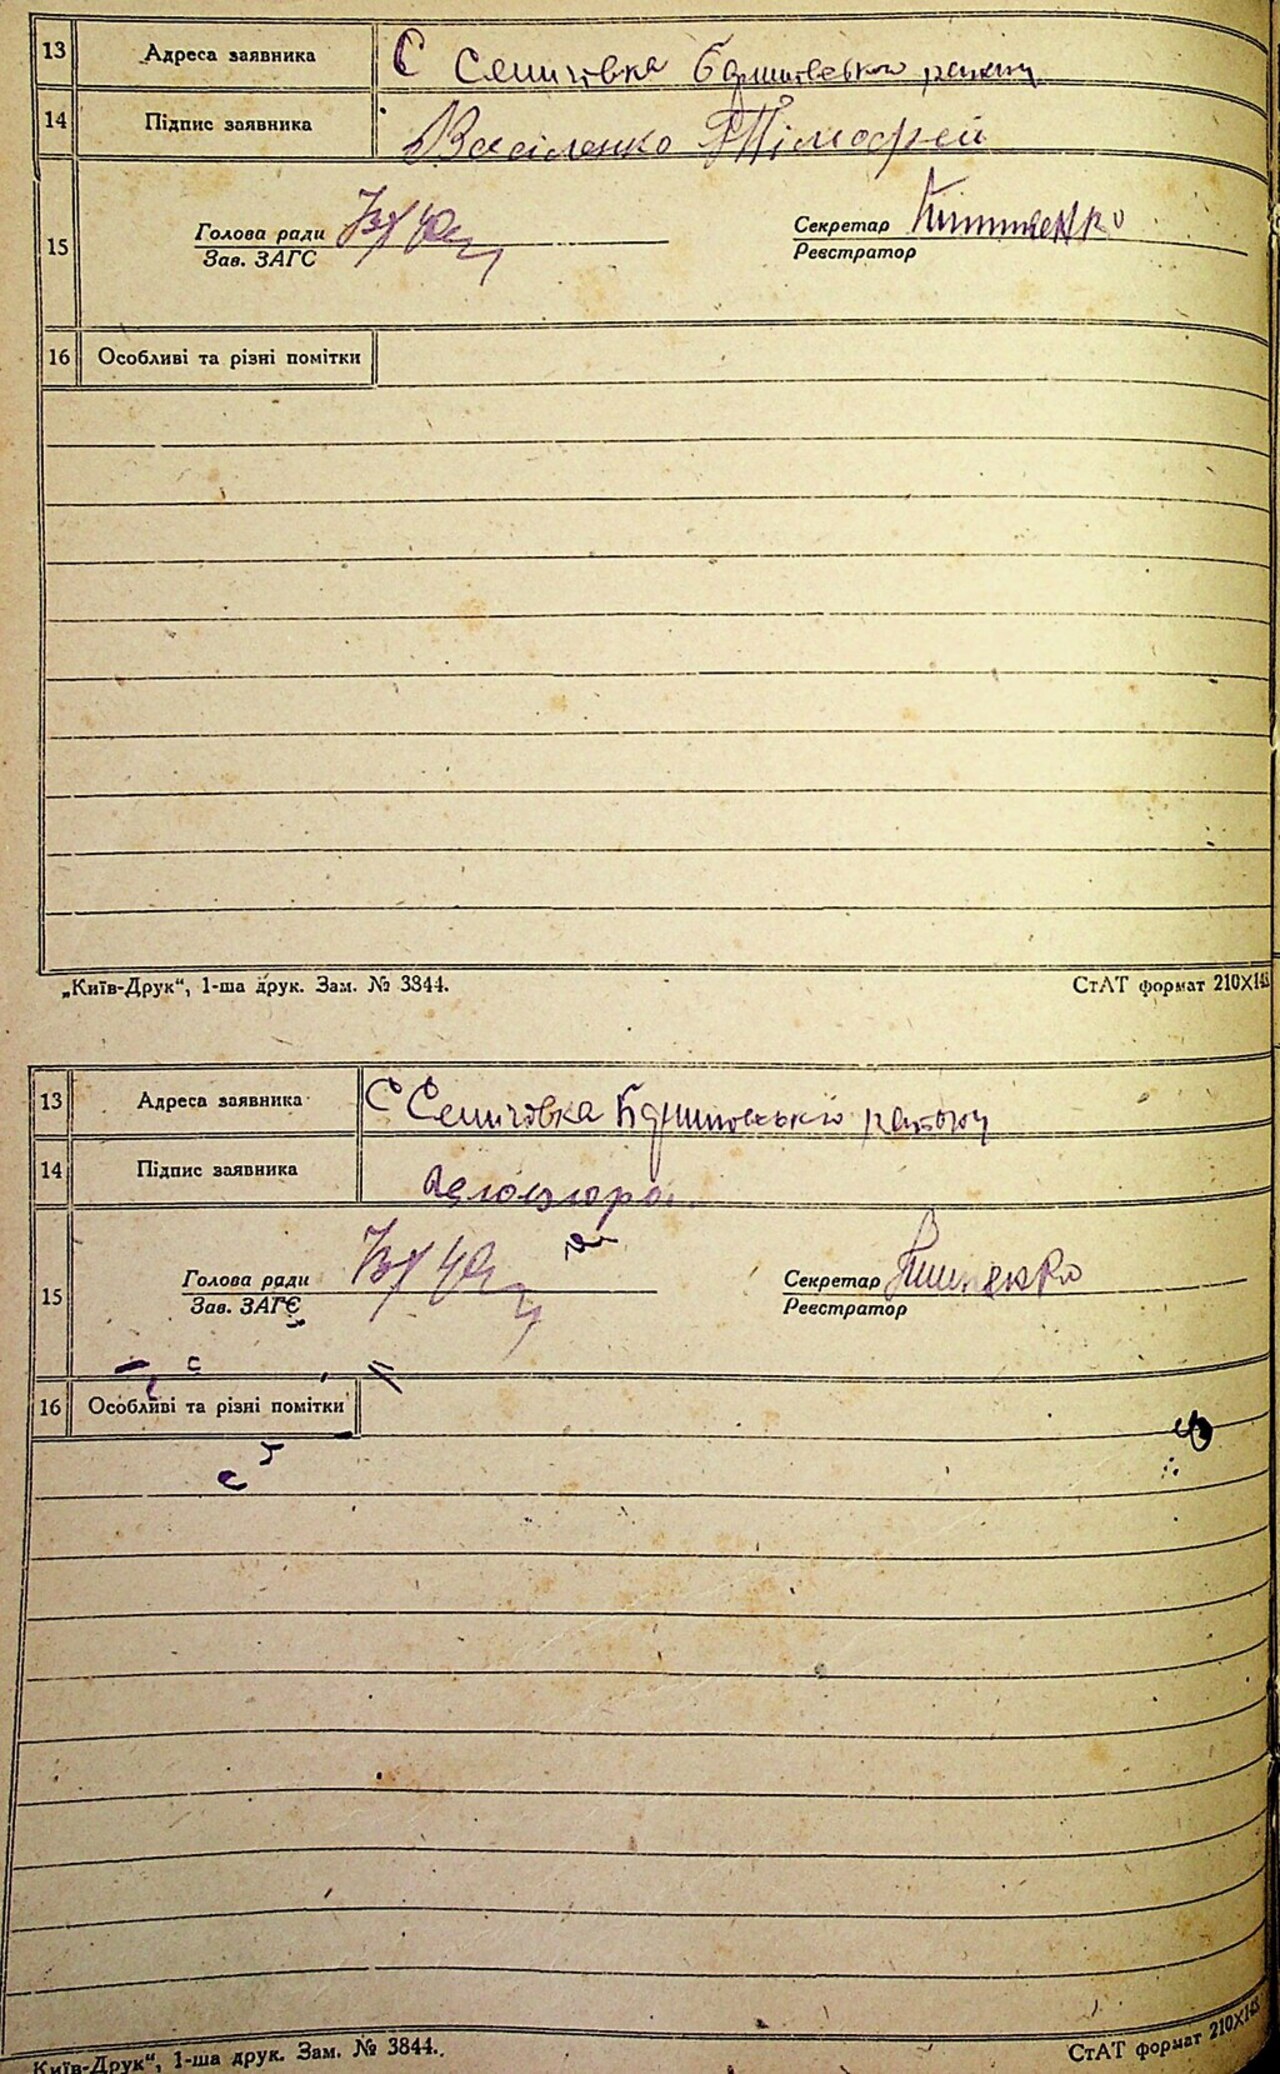 13 Адреса заявника С Семигівка Баришівського району
14 Підпис заявника Василенко Тімофей
Голова ради
Секретар
15
Зав. ЗАГС
Реєстратор
16 Особливі та різні помітки
„Київ-Друк“, 1-ша друк. Зам. № 3844.
СтАТ формат 210X148
13 Адреса заявника С Баришівського району
14 Підпис заявника
Голова ради
Секретар
15
Зав. ЗАГС
Реєстратор
16 Особливі та різні помітки
Київ-Друк“, 1-ша друк. Зам. № 3844.
СтАТ формат 210X148